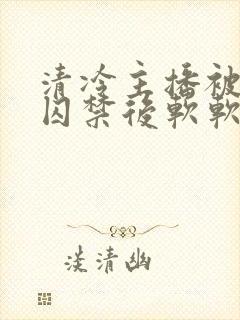 清冷主播被
囚禁後軟軟
淡清幽